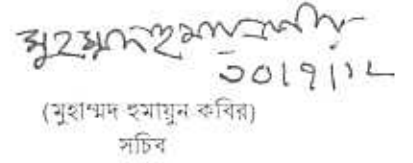 মুহম্মদ হুমায়ুন কবির
৩০।৭।১২
(মুহাম্মদ হুমায়ুন কবির)
সচিব